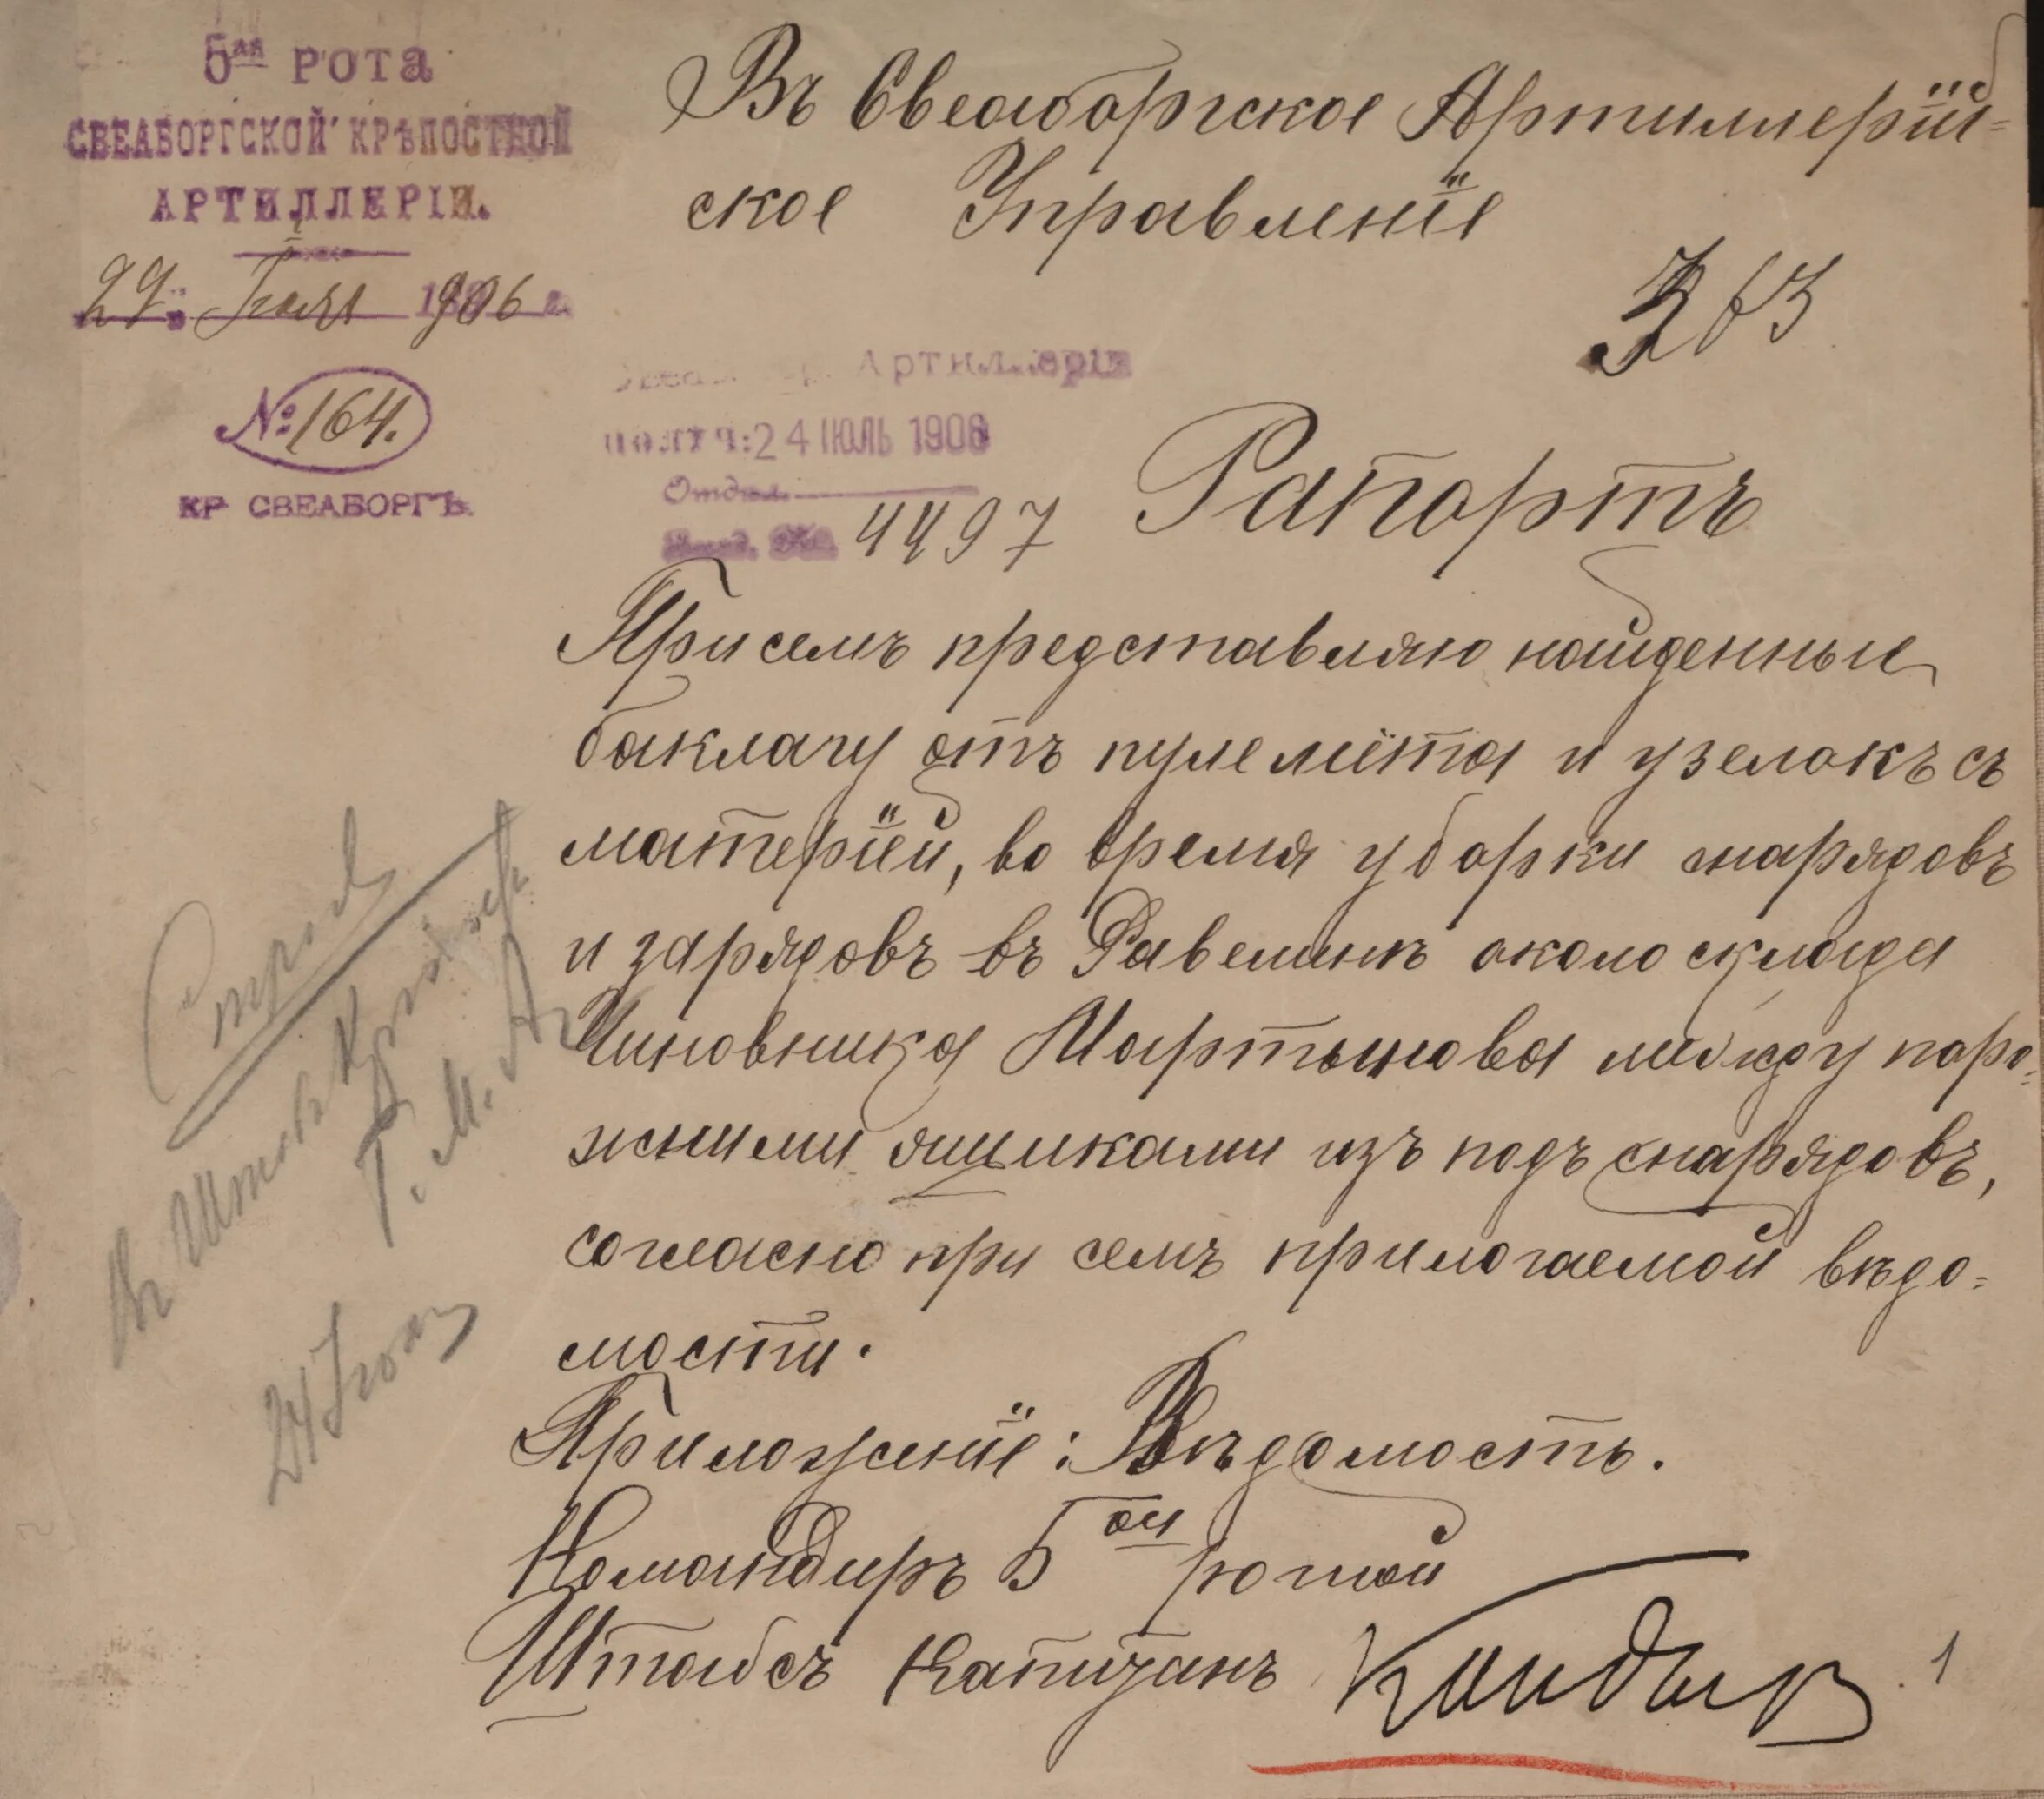 5ая РОТА
СВЕАБОРГСКОЙ КРѢПОСТНОЙ
АРТИЛЛЕРІИ.
Іюля 1906 г.
№ 164.
КР СВЕАБОРГЪ.
Въ Свеаборгское Артиллерій=
ское Управленіе
Артиллерія
ПОЛУЧ: 24 ІЮЛЬ 1906
Отдѣл.
Вход. №. 4497
Рапортъ
При семъ представляю найденные
баклагу отъ пулемёта и узелокъ съ
матеріей, во время уборки снарядовъ
и зарядовъ въ Равелинѣ около склада
Чиновника Мартынова между поро=
жними ящиками изъ подъ снарядовъ,
согласно при семъ прилагаемой вѣдо=
мости.
Приложеніе: Вѣдомость.
Командиръ 5ой ротой
Штабсъ Капитанъ
1
Строев
Въ Штабъ Крѣпости
24 Іюля